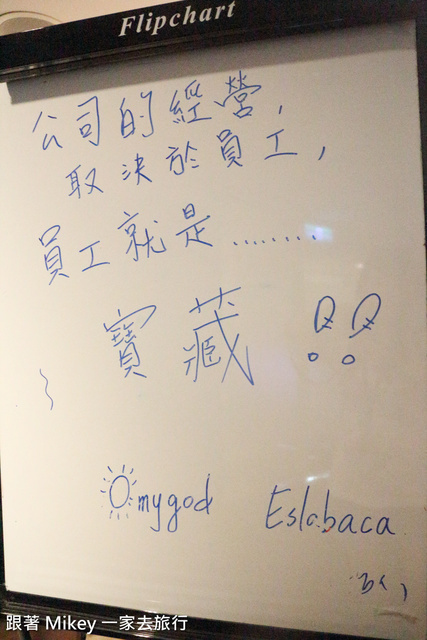 Flipchart
公司的經營,
取決於員工,
員工就是........
寶藏!!
Omygod Eslabaca
跟著 Mikey 一家去旅行